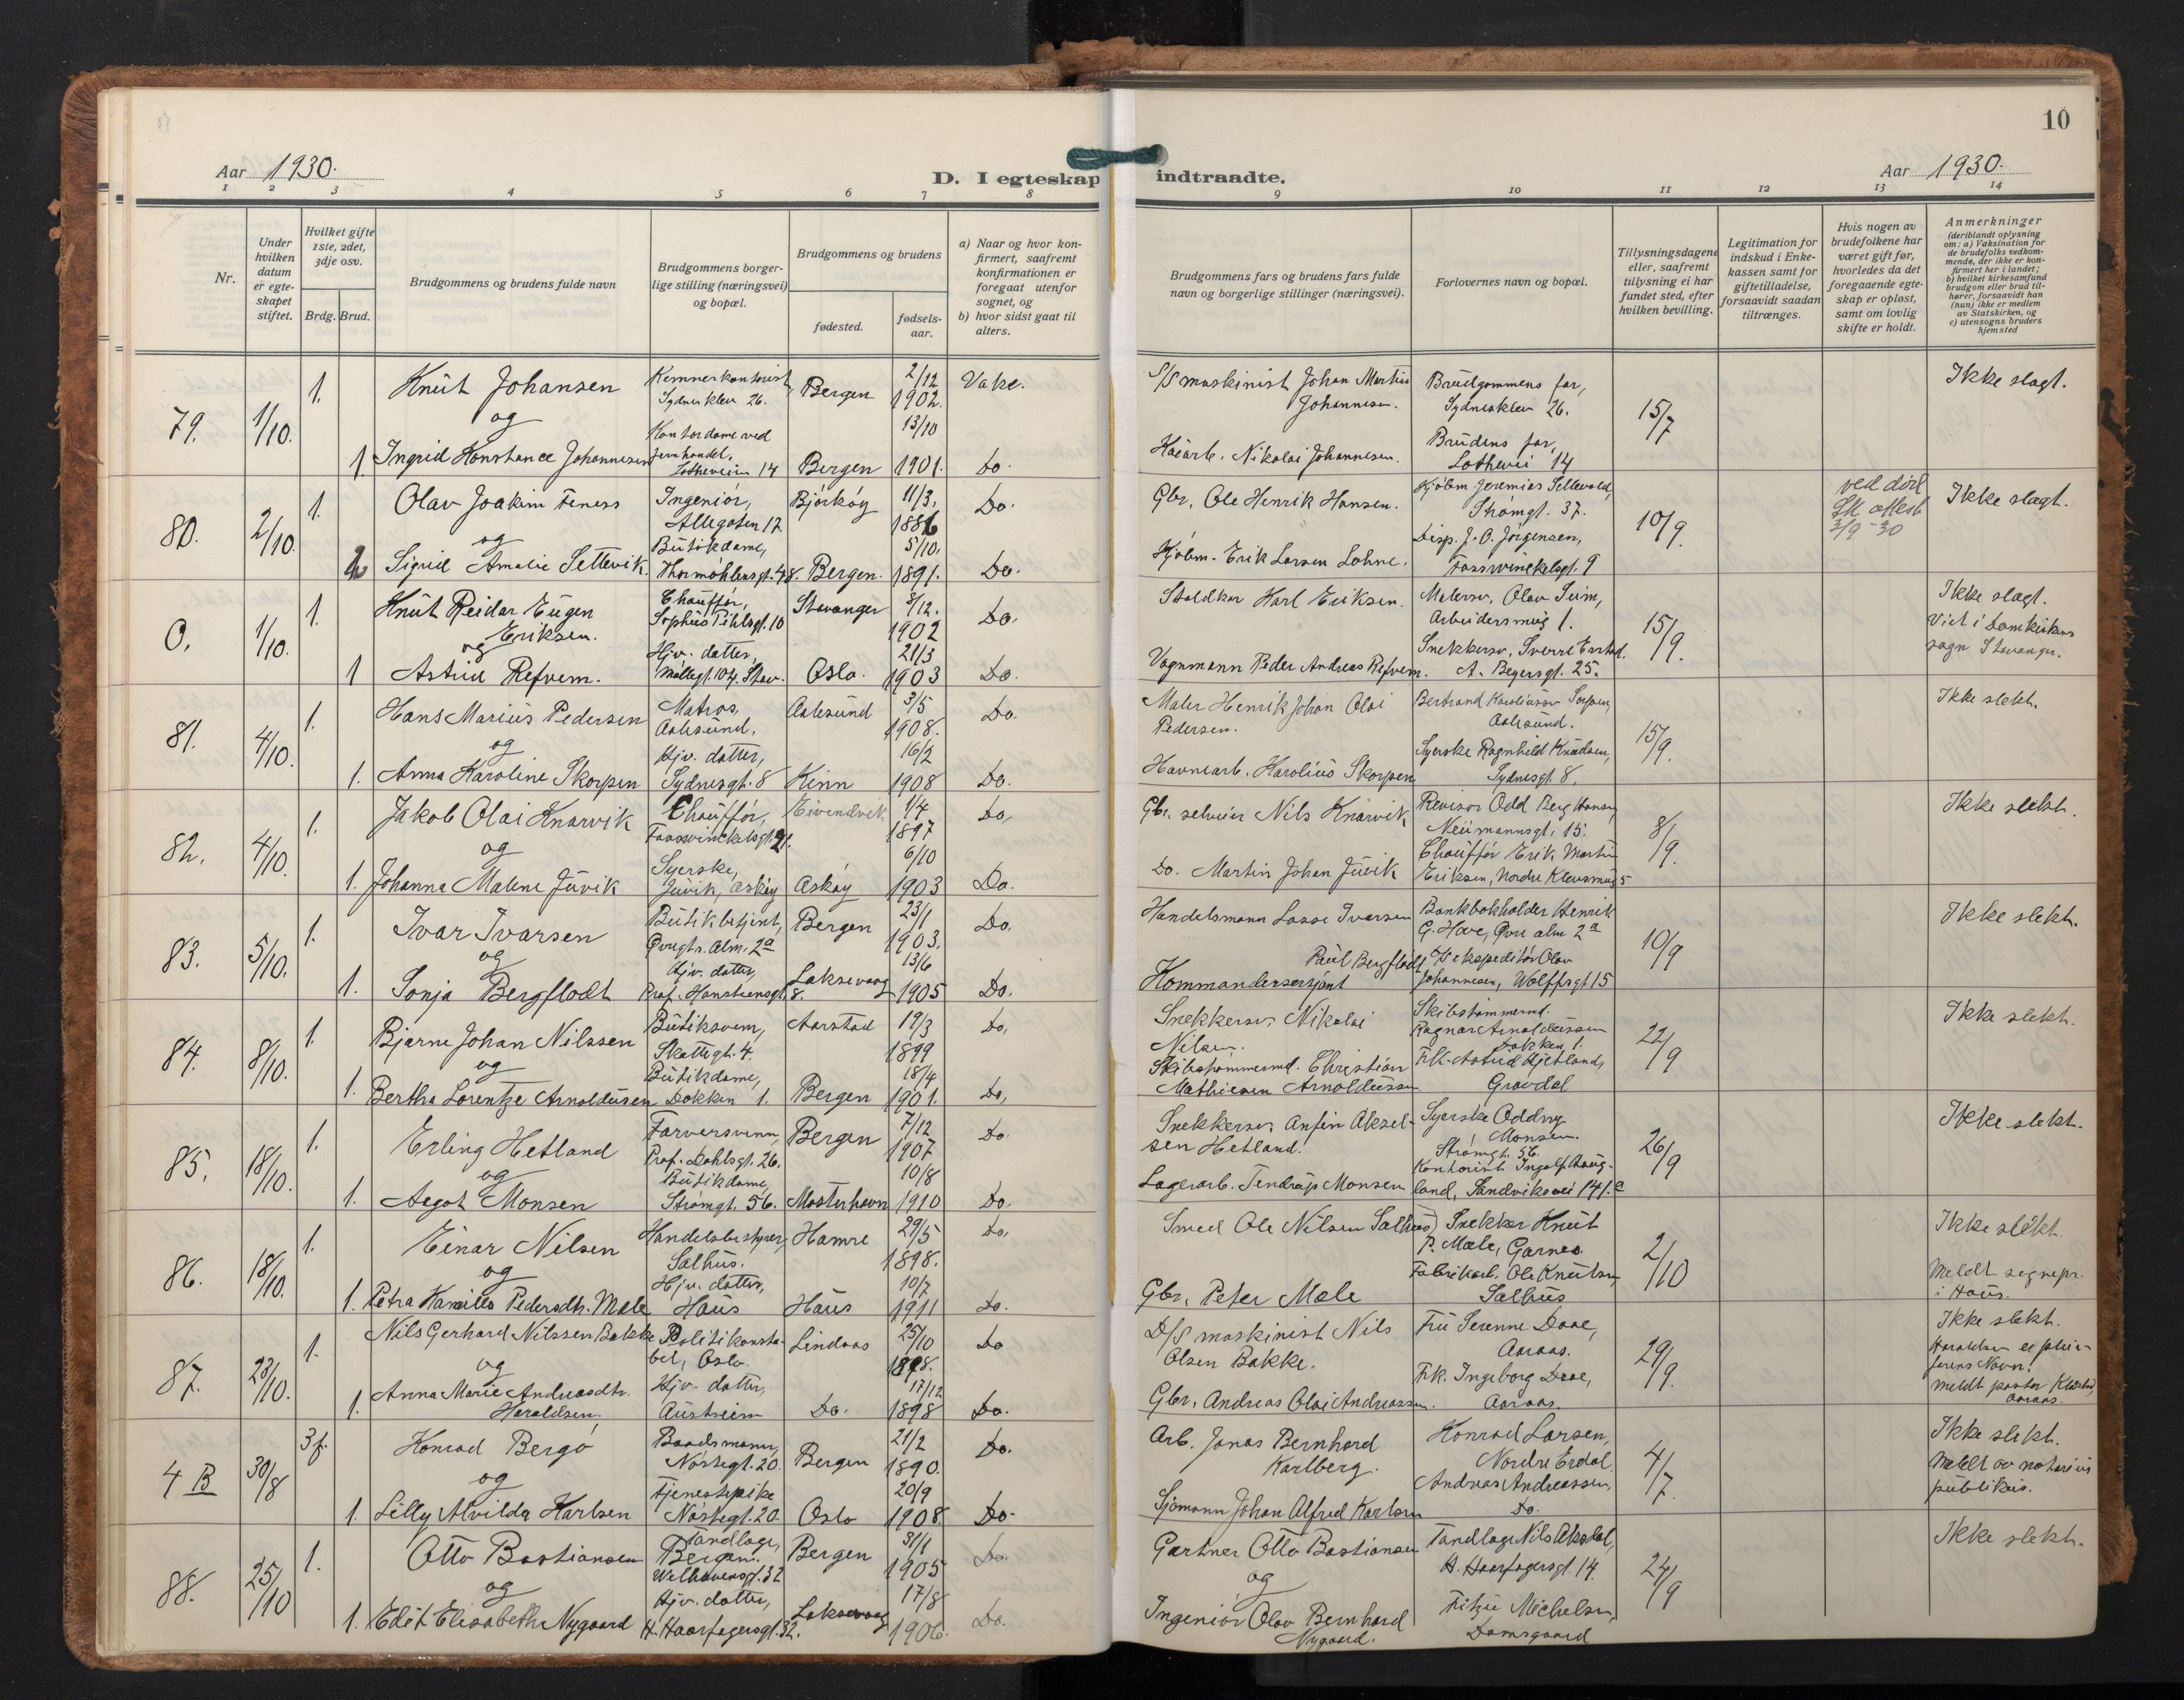 10
Aar 1930.
D. I egteskap indtraadte.
Aar 1930.
1 2 3 4 5 6 7 8 9 10 11 12 13 14
Nr.
Under hvilken datum er egte-skapet stiftet.
Hvilket gifte 1ste, 2det, 3dje osv.
Brdg. Brud.
Brudgommens og brudens fulde navn
Brudgommens borger-lige stilling (næringsvei) og bopæl.
Brudgommens og brudens
fødested.
fødsels-aar.
a) Naar og hvor kon-firmert, saafremt konfirmationen er foregaat utenfor sognet, og
b) hvor sidst gaat til alters.
Brudgommens fars og brudens fars fulde navn og borgerlige stillinger (næringsvei).
Forlovernes navn og bopæl.
Tillysningsdagene eller, saafremt tillysning ei har fundet sted, efter hvilken bevilling.
Legitimation for indskud i Enke-kassen samt for giftetilladelse, forsaavidt saadan tiltrænges.
Hvis nogen av brudefolkene har været gift før, hvorledes da det foregaaende egte-skap er opløst, samt om lovlig skifte er holdt.
Anmerkninger (deriblandt oplysning om: a) Vaksination for de brudefolks vedkom-mende, der ikke er kon-firmert her i landet; b) hvilket kirkesamfund brudgom eller brud til-hører, forsaavidt han (hun) ikke er medlem av Statskirken, og c) utensogns bruders hjemsted
79. 1/10. 1. Knut Johansen
og
1 Ingrid Konstance Johannesen
Kemnerkontorist, Sydneskleu 26.
Kontordame ved Jernhandel. Lotheveien 14
Bergen 2/12 1902.
Bergen 13/10 1901.
Do.
S/S maskinist Johan Martin Johannesen.
Nikolai Johannesen.
Brudgommens far, Sydneskleu 26.
Brudens far, Lothevei 14
15/7
Ikke slagt.
80. 2/10. 1. Olav Joakim Feness
og
2 Sigrid Amalie Settevik.
Ingeniør, Allegaten 17
Butikdame, Thormøhlensgt. 48.
Bjørkøy 11/3. 1886
Bergen. 5/10. 1891.
Do.
Do.
Gbr. Ole Henrik Hansen.
Kjøbm. Erik Larsen Lohne.
Kjøbm. Jeremias Settevold, Strømgt. 37.
Disp. J. O. Jørgensen, Fosswinckelsgt. 9
10/9.
ved død
3/9-30
Ikke slagt.
0. 1/10. 1. Knut Reidar Eugen Eriksen.
og
1 Astrid Refvem.
Chauffør, Sophus Pihlsgt. 10
Hjv. datter, Møllegt. 104. Stav.
Stavanger 8/12. 1902
Oslo. 21/3 1903
Do.
Do.
Staldkar Karl Eriksen.
Vognmann Peder Andreas Refvem.
Malersv. Olav Seim, Arbeidersmug 1.
Snekkersv. Sverre Erstad. A. Beyersgt. 25.
15/9.
Ikke slagt.
Viet i Domkirkens sogn Stavanger.
81. 4/10. 1. Hans Marius Pedersen
og
1. Anna Karoline Skorpen
Matros, Aalesund.
Hjv. datter, Sydnesgt. 8
Aalesund 3/5 1908.
Kinn 16/2 1908
Do.
Do.
Maler Henrik Johan Olai Pedersen.
Havnearb. Karolius Skorpen
Bertrand Aalesund.
Syerske Ragnhild Knudsen, Sydnesgt. 8.
15/9.
Ikke slekt.
82. 4/10. 1. Jakob Olai Knarvik
og
1. Johanna Malene Juvik
Chauffør, Fosswinckelsgt. 21.
Syerske, Juvik, Askøy
Eivendvik 1/4 1897
Askøy 6/10 1903
Do.
Do.
Gbr. selveier Nils Knarvik
Do. Martin Johan Juvik
Revisor Odd Berg Hansen, Neumannsgt. 15.
Chauffør Erik Martin Eriksen, Nordre Klevsmug 5
8/9.
Ikke slekt.
83. 5/10. 1. Ivar Ivarsen
og
1. Sonja Bergflødt
Butikbetjent, Øvregt. Alm. 2a
Hjv. datter, Prof. Hansteensgt. 8.
Bergen 23/1 1903.
Laksevaag 13/6 1905
Do.
Do.
Handelsmann Lasse Ivarsen
Paul Bergflødt
Kommandersersjant
Bankbokholder Henrik G. Hove, Øvre alm 2a
Ekspeditør Olav Johannesen, Wolffsgt 15
10/9
Ikke slekt.
84. 8/10. 1. Bjarne Johan Nilssen
og
1. Bertha Lorentze Arnoldussen
Butiksvenn, Skottegt. 4.
Butikdame, Dokken 1.
Aarstad 19/3 1899
Bergen 18/4 1901.
Do,
Do,
Snekkersv. Nikolai Nilsen.
Skibstømmermd. Christian Mathiesen Arnoldussen
Skibstømmermd. Ragnar Arnoldussen Dokken 1.
Frk. Astrid Hjetland, Gravdal
22/9
Ikke slekt.
85. 18/10. 1. Erling Hetland
og
1. Aagot Monsen
Farversvenn, Prof. Dahlsgt. 26.
Butikdame, Strømgt. 56.
Bergen 7/12 1907
Mosterhavn 10/8 1910
Do.
Do.
Snekkersv. Anfin Aksel-sen Hetland.
Lagerarb. Tendrup Monsen
Syerske Oddny Monsen. Strømgt. 56.
Kontorist Ingolf Haug-land, Sandviksvei 141.a
26/9
Ikke slekt.
86. 18/10. 1. Einar Nilsen
og
1. Petra Kamilla Pedersdtr. Mæle
Handelsbestyrer, Salhus.
Hjv. datter, Haus
Hamre 29/5 1898.
Haus 10/7 1911
Do,
Do.
Smed Ole Nilsen Salhus
Gbr. Peter Mæle
Snekker Knut P. Mæle, Garnes.
Fabrikarb. Ole Knutsen, Salhus
2/10
Ikke slekt.
Meldt sognepr. i Haus.
87. 23/10. 1. Nils Gerhard Nilssen Bakke
og
1. Anna Marie Andreasdtr. Haraldsen.
Politikonsta-bel, Oslo.
Hjv. datter, Austrheim
Lindaas 25/10 1898.
Do. 17/12 1898
Do
Do.
D/S maskinist Nils Olsen Bakke.
Gbr. Andreas Olai Andreassen.
Fru Serenne Daae, Aaraas.
Frk. Ingeborg Daae, Aaraas.
29/9.
Ikke slekt.
Haraldsen er
Navn.
Meldt pastor Aaraas.
4 B 30/8 3f. Konrad Bergø
og
1. Lilly Alvilda Karlsen
Baadsmann, Nøstegt. 20.
Tjenestepike Nøstegt. 20
Bergen 21/2 1890.
Oslo 20/9 1908.
Do.
Do.
Arb. Jonas Bernhard Karlberg.
Sjømann Johan Alfred Karlsen
Konrad Larsen, Nordre Erdal.
Andreas Andreassen, Do.
4/7.
Ikke slekt.
Meldt av notarius publikus.
88. 25/10 1. Otto Bastiansen
og
1. Edit Elisabeth Nygaard
Tandlæge, Bergen. Welhavensgt. 32
Hjv. datter, H. Haarfagersgt. 32.
Bergen 31/1 1905
Laksevaag 17/8 1906.
Do.
Do.
Gartner Otto Bastiansen
og
Ingeniør Olav Bernhard Nygaard.
Tandlæge Nils Aksdal, H. Haarfagersgt. 14.
Fritze Michelsen, Damsgaard
24/9
Ikke slekt.